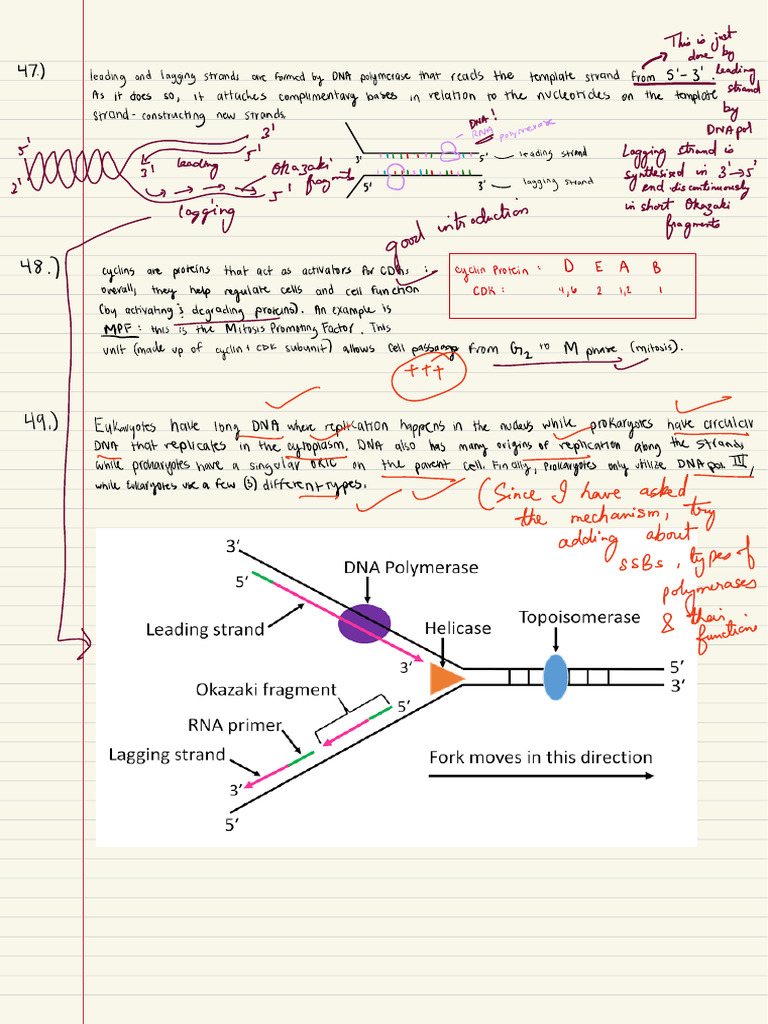 47.)
leading and lagging strands are formed by DNA polymerase that reads the template strand from 5'-3'.
As it does so, it attaches complimentary bases in relation to the nucleotides on the template
strand - constructing new strands.
This is just
done by
leading
strand
by
DNA pol
Lagging strand is
synthesized in 3'→5'
end discontinuously
in short Okazaki
fragments
5'
2'
3'
5'
3'
leading
Okazaki
fragments
5'
lagging
DNA!
RNA polymerase
3'
5'
leading strand
5'
3'
lagging strand
good introduction
48.)
cyclins are proteins that act as activators for CDKs :
overall, they help regulate cells and cell function
(by activating & degrading proteins). An example is
MPF : this is the Mitosis Promoting Factor. This
unit (made up of cyclin + CDK subunit) allows cell passage from G2 to M phase (mitosis).
cyclin Protein : D E A B
CDK : 4,6 2 1,2 1
+++
49.)
Eukaryotes have long DNA where replication happens in the nucleus while prokaryotes have circular
DNA that replicates in the cytoplasm. DNA also has many origins of replication along the strands
while prokaryotes have a singular ORIC on the parent cell. Finally, prokaryotes only utilize DNA pol III,
while Eukaryotes use a few (3) different types.
(Since I have asked
the mechanism, try
adding about
SSBs, types of
polymerases
& their
functions
3'
5'
DNA Polymerase
Leading strand
Helicase
Topoisomerase
3'
5'
3'
Okazaki fragment
5'
RNA primer
Lagging strand
Fork moves in this direction
3'
5'